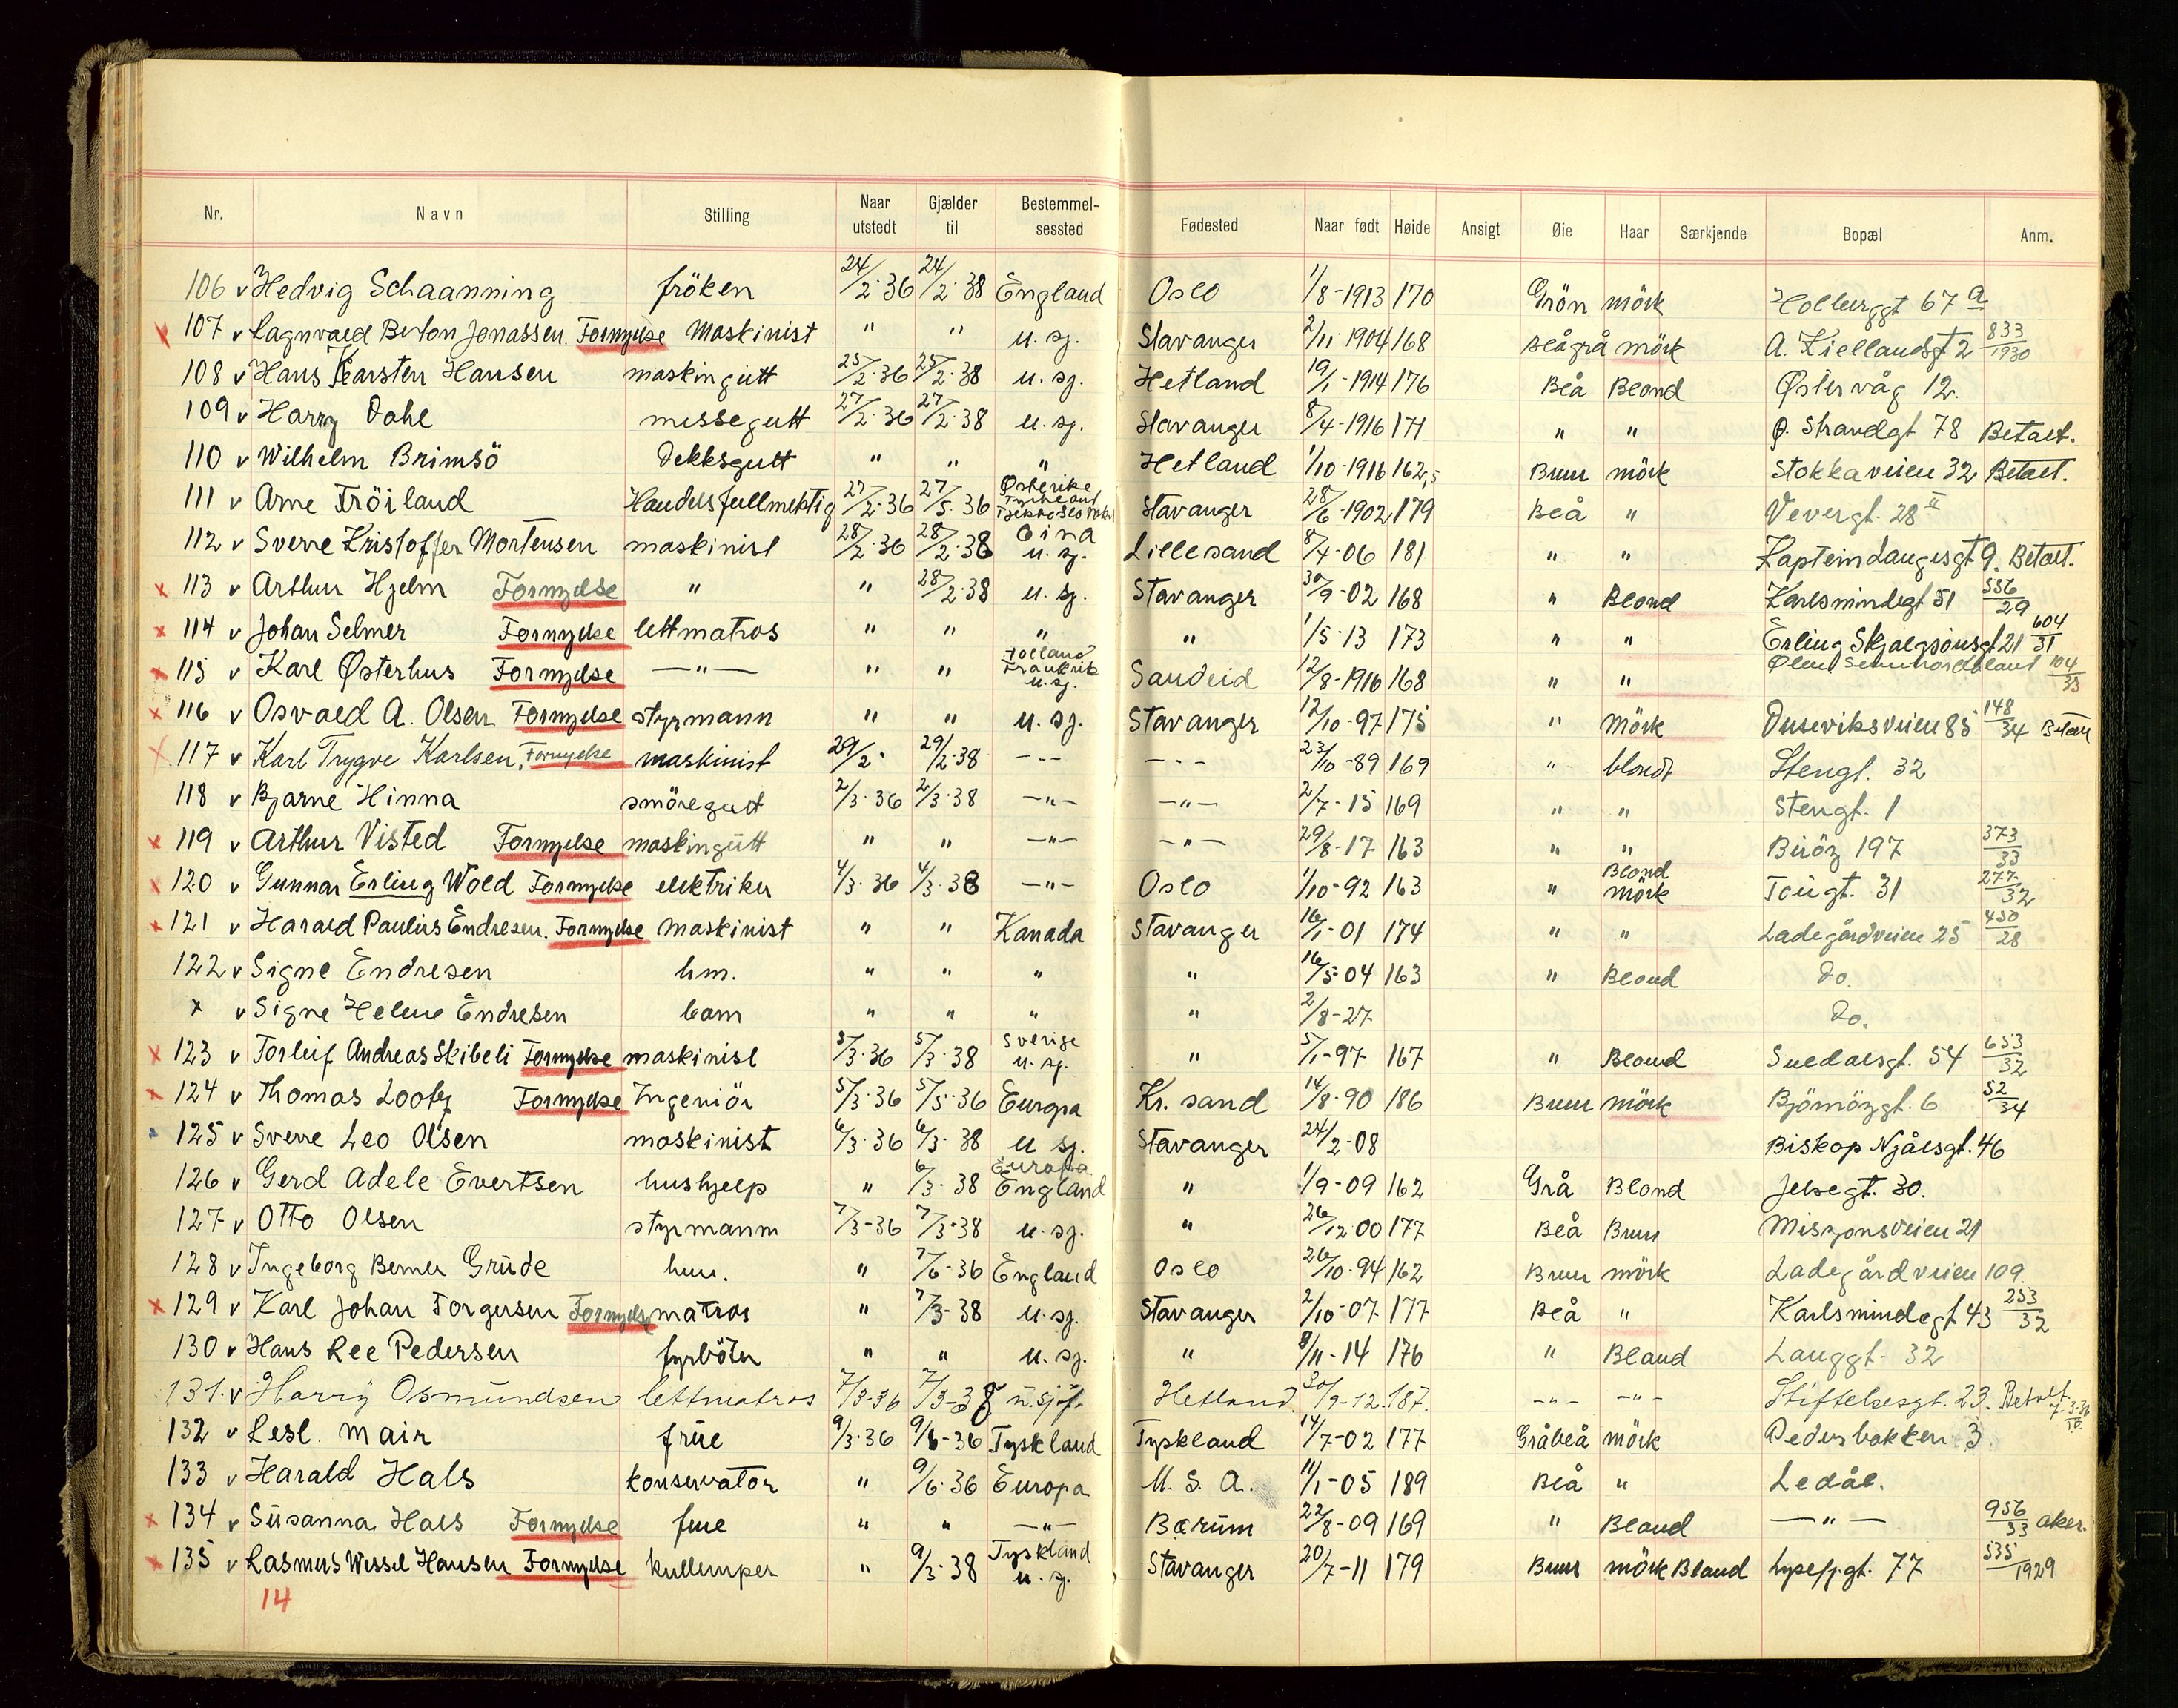 Nr. Navn Stilling Naar utstedt Gjælder til Bestemmelsessted Fødested Naar født Høide Ansigt Øie Haar Særkjende Bopæl Anm.
106 v Hedvig Schaanning fröken 24/2-36 24/2-38 England Oslo 1/8-1913 170 Grön mörk Holberggt 67 a
x 107 v Ragnvald Berton Jonassen. Fornyelse Maskinist " " u. sj. Stavanger 2/11 1904 168 Blågrå mörk A. Kiellandsgt 2 833/1930
108 v Hans Karsten Hansen maskingutt 25/2-36 25/2-38 u. sj. Hetland 19/1-1914 176 Blå Blond Østervåg 12.
109 v Harry Dahl messegutt 27/2-36 27/2-38 u. sj. Stavanger 8/4-1916 171 " " Ø. Strandgt 78 Betalt.
110 v Wilhelm Brimsö Dekksgutt " " " Hetland 1/10-1916 162,5 Brun mörk Stokkaveien 32 Betalt.
111 v Arne Fröiland Handelsfullmektig 27/2-36 27/5-36 Østerike Tyskland Stavanger 28/6-1902 179 Blå " Vevergt. 28 II
112 v Sverre Kristoffer Mortensen maskinist 28/2-36 28/2-38 u. sj. Lillesand 8/4-06 181 " " Kaptein Langesgt 9. Betalt.
x 113 v Arthur Hjelm Fornyelse " " 28/2-38 u. sj. Stavanger 30/9-02 168 " Blond Karlsmindegt 51 556/29
x 114 v Johan Selmer Fornyelse lettmatros " " " " 1/5-13 173 " " Erling Skjalgsonsgt 21 604/31
x 115 v Karl Østerhus Fornyelse —"— " " Holland Frankrik u. sj. Sandeid 12/8-1916 168 " " Ølen Sunnhordland 104/33
x 116 v Osvald A. Olsen Fornyelse styrmann " " u. sj. Stavanger 12/10-97 175 " Mörk Duseviksveien 85 148/34 Betalt
x 117 v Karl Trygve Karlsen, Fornyelse maskinist 29/2- 29/2-38 -"- -"- 23/10-89 169 " blondt Stengt. 32
118 v Bjarne Hinna smöregutt 2/3-36 2/3-38 —"— —"— 2/7-15 169 " " Stengt. 1
x 119 v Arthur Visted Fornyelse maskingutt " " —"— —"— 29/8-17 163 " " Buöy 197 373/33
x 120 v Gunnar Erling Wold Fornyelse elektriker 4/3-36 4/3-38 —"— Oslo 1/10-92 163 " Blond mörk Tougt. 31 277/32
x 121 v Harald Paulus Endresen. Fornyelse Maskinist " " Kanada Stavanger 16/1-01 174 " " Ladegårdveien 25 450/28
122 v Signe Endresen hm. " " " " 16/5-04 163 " Blond do.
x v Signe Helene Endresen barn " " " " 2/8-27 do.
x 123 v Torleif Andreas Skibeli Fornyelse maskinist 5/3-36 5/3-38 Sverige u. sj. " 5/1-97 167 " Blond Suldalsgt. 54 653/32
x 124 v Thomas Lootz Fornyelse Ingeniör 5/3-36 5/5-36 Europa Kr. sand 14/8-90 186 Brun mörk Björnöygt. 6 52/34
125 v Sverre Leo Olsen maskinist 6/3-36 6/3-38 u sj. Stavanger 24/2-08 Biskop Njålsgt. 46
126 v Gerd Adele Evertsen hushjelp " 6/3-38 Europa England " 1/9-09 162 Grå Blond Jelsegt. 30.
127 v Otto Olsen styrmann 7/3-36 7/3-38 u. sj. " 26/12 00 177 Blå Brun Misjonsveien 21
128 v Ingeborg Berner Grude hm. " 7/6-36 England Oslo 26/10-94 162 Brun mörk Ladegårdveien 109.
x 129 v Karl Johan Torgersen Fornyelse matros " 7/3-38 u. sj. Stavanger 2/10-07 177 Blå " Karlsmindegt 43 253/32
130 v Hans Lee Pedersen fyrböter " " u. sj. " 8/11-14 176 " Blond Langgt. 32
131. v Harry Osmundsen lettmatros 7/3-36 7/3-38 u. sjøf. Hetland. 30/9-12. 187. -"- -"- Stiftelsesgt. 23. Betalt 7-3-36
132 v Lesl. Mair frue 9/3-36 9/6-36 Tyskland Tyskland 14/7-02 177 Gråblå mörk Pedersbakken 3
133 v Harald Hals konservator " 9/6-36 Europa U. S. A. 11/1-05 189 Blå " Ledål.
x 134 v Susanna Hals Fornyelse frue " " —"— Bærum 22/8-09 169 " Blond —"— 956/33 Aker.
x 135 v Rasmus Wessel Hansen Fornyelse kullemper " 9/3-38 Tyskland u. sj. Stavanger 20/7-11 179 Brun mörk Blond Lysefj.gt. 77 535/1929
14